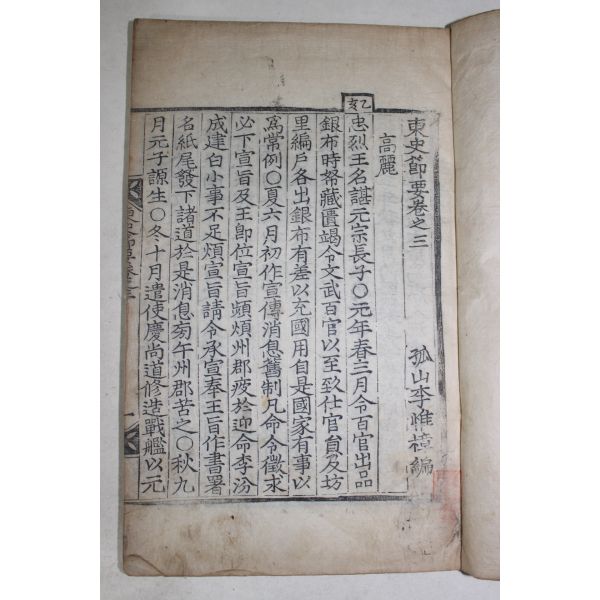 東史節要卷之三
孤山李惟樟編
高麗
乙亥
忠烈王名諶元宗長子〇元年春三月令百官出品
銀布時帑藏匱竭令文武百官以至致仕官員及坊
里編戶各出銀布有差以充國用自是國家有事以
爲常例〇夏六月初作宣傳消息舊制凡命令徵求
必下宣旨及王卽位宣旨頻煩州郡疲於迎命李汾
成建白小事不足煩宣旨請令承宣奉王旨作書署
名紙尾發下諸道於是消息旁午州郡苦之〇秋九
月元子謜生〇冬十月遣使慶尚道修造戰艦以元